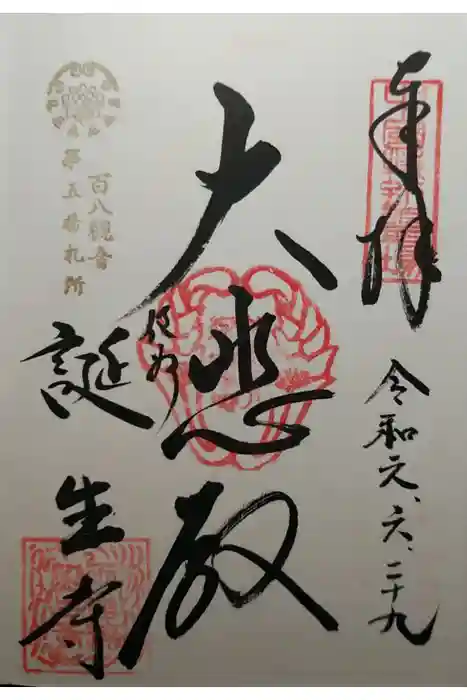 奉拝
令和元、六、二十九
大悲殿
作州
誕生寺
百八観音
第五番札所